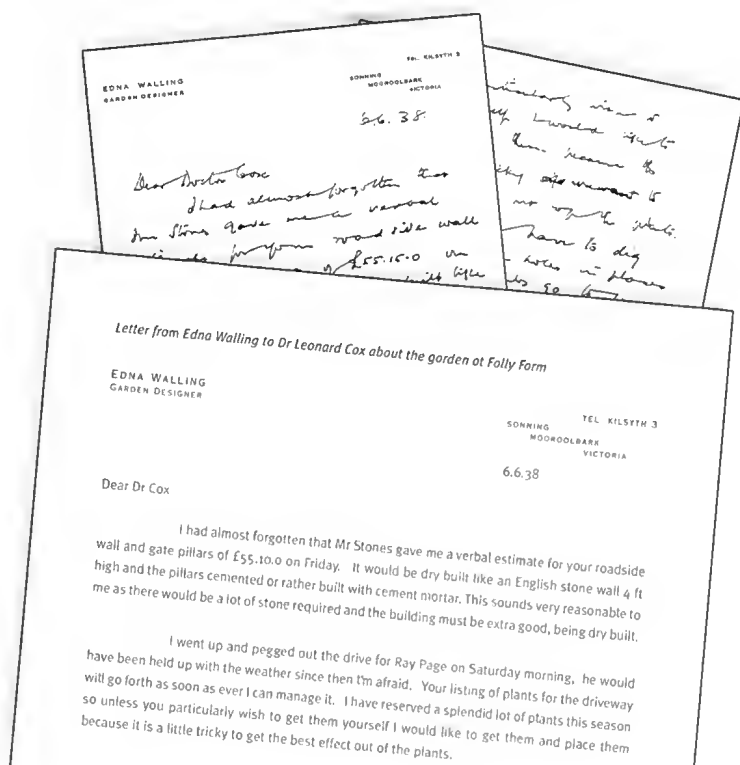 EDNA WALLING
GARDEN DESIGNER
TEL KILSYTH 3
SONNING
MOOROOLBARK
VICTORIA
6.6.38.
Dear Doctor Cox
I had almost forgotten that
Mr Stones gave me a verbal
for your road side wall
£55.15.0
built like
particularly wish to
I would like to
them because
tricky
the plants.
have to dig
holes in places
go
Letter from Edna Walling to Dr Leonard Cox about the garden at Folly Form
EDNA WALLING
GARDEN DESIGNER
TEL KILSYTH 3
SONNING
MOOROOLBARK
VICTORIA
6.6.38
Dear Dr Cox
I had almost forgotten that Mr Stones gave me a verbal estimate for your roadside
wall and gate pillars of £55.10.0 on Friday. It would be dry built like an English stone wall 4 ft
high and the pillars cemented or rather built with cement mortar. This sounds very reasonable to
me as there would be a lot of stone required and the building must be extra good, being dry built.
I went up and pegged out the drive for Ray Page on Saturday morning, he would
have been held up with the weather since then I'm afraid. Your listing of plants for the driveway
will go forth as soon as ever I can manage it. I have reserved a splendid lot of plants this season
so unless you particularly wish to get them yourself I would like to get them and place them
because it is a little tricky to get the best effect out of the plants.